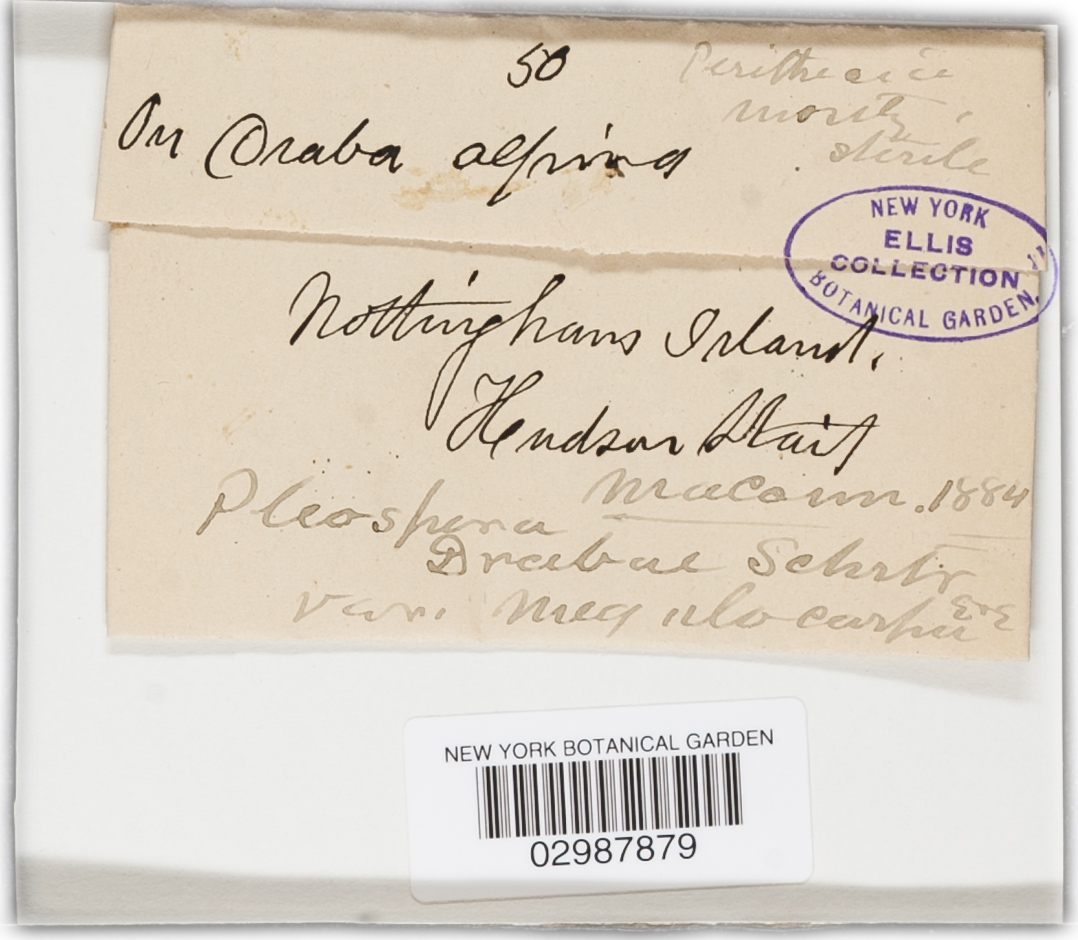 50
Perithecia
mostly
sterile
On Draba alpina
NEW YORK
ELLIS
COLLECTION
BOTANICAL GARDEN
Nottingham Island.
Hudson Strait
Macoun. 1884
Pleospora
Drabae Schrtr
var. megalocarpa
NEW YORK BOTANICAL GARDEN
02987879